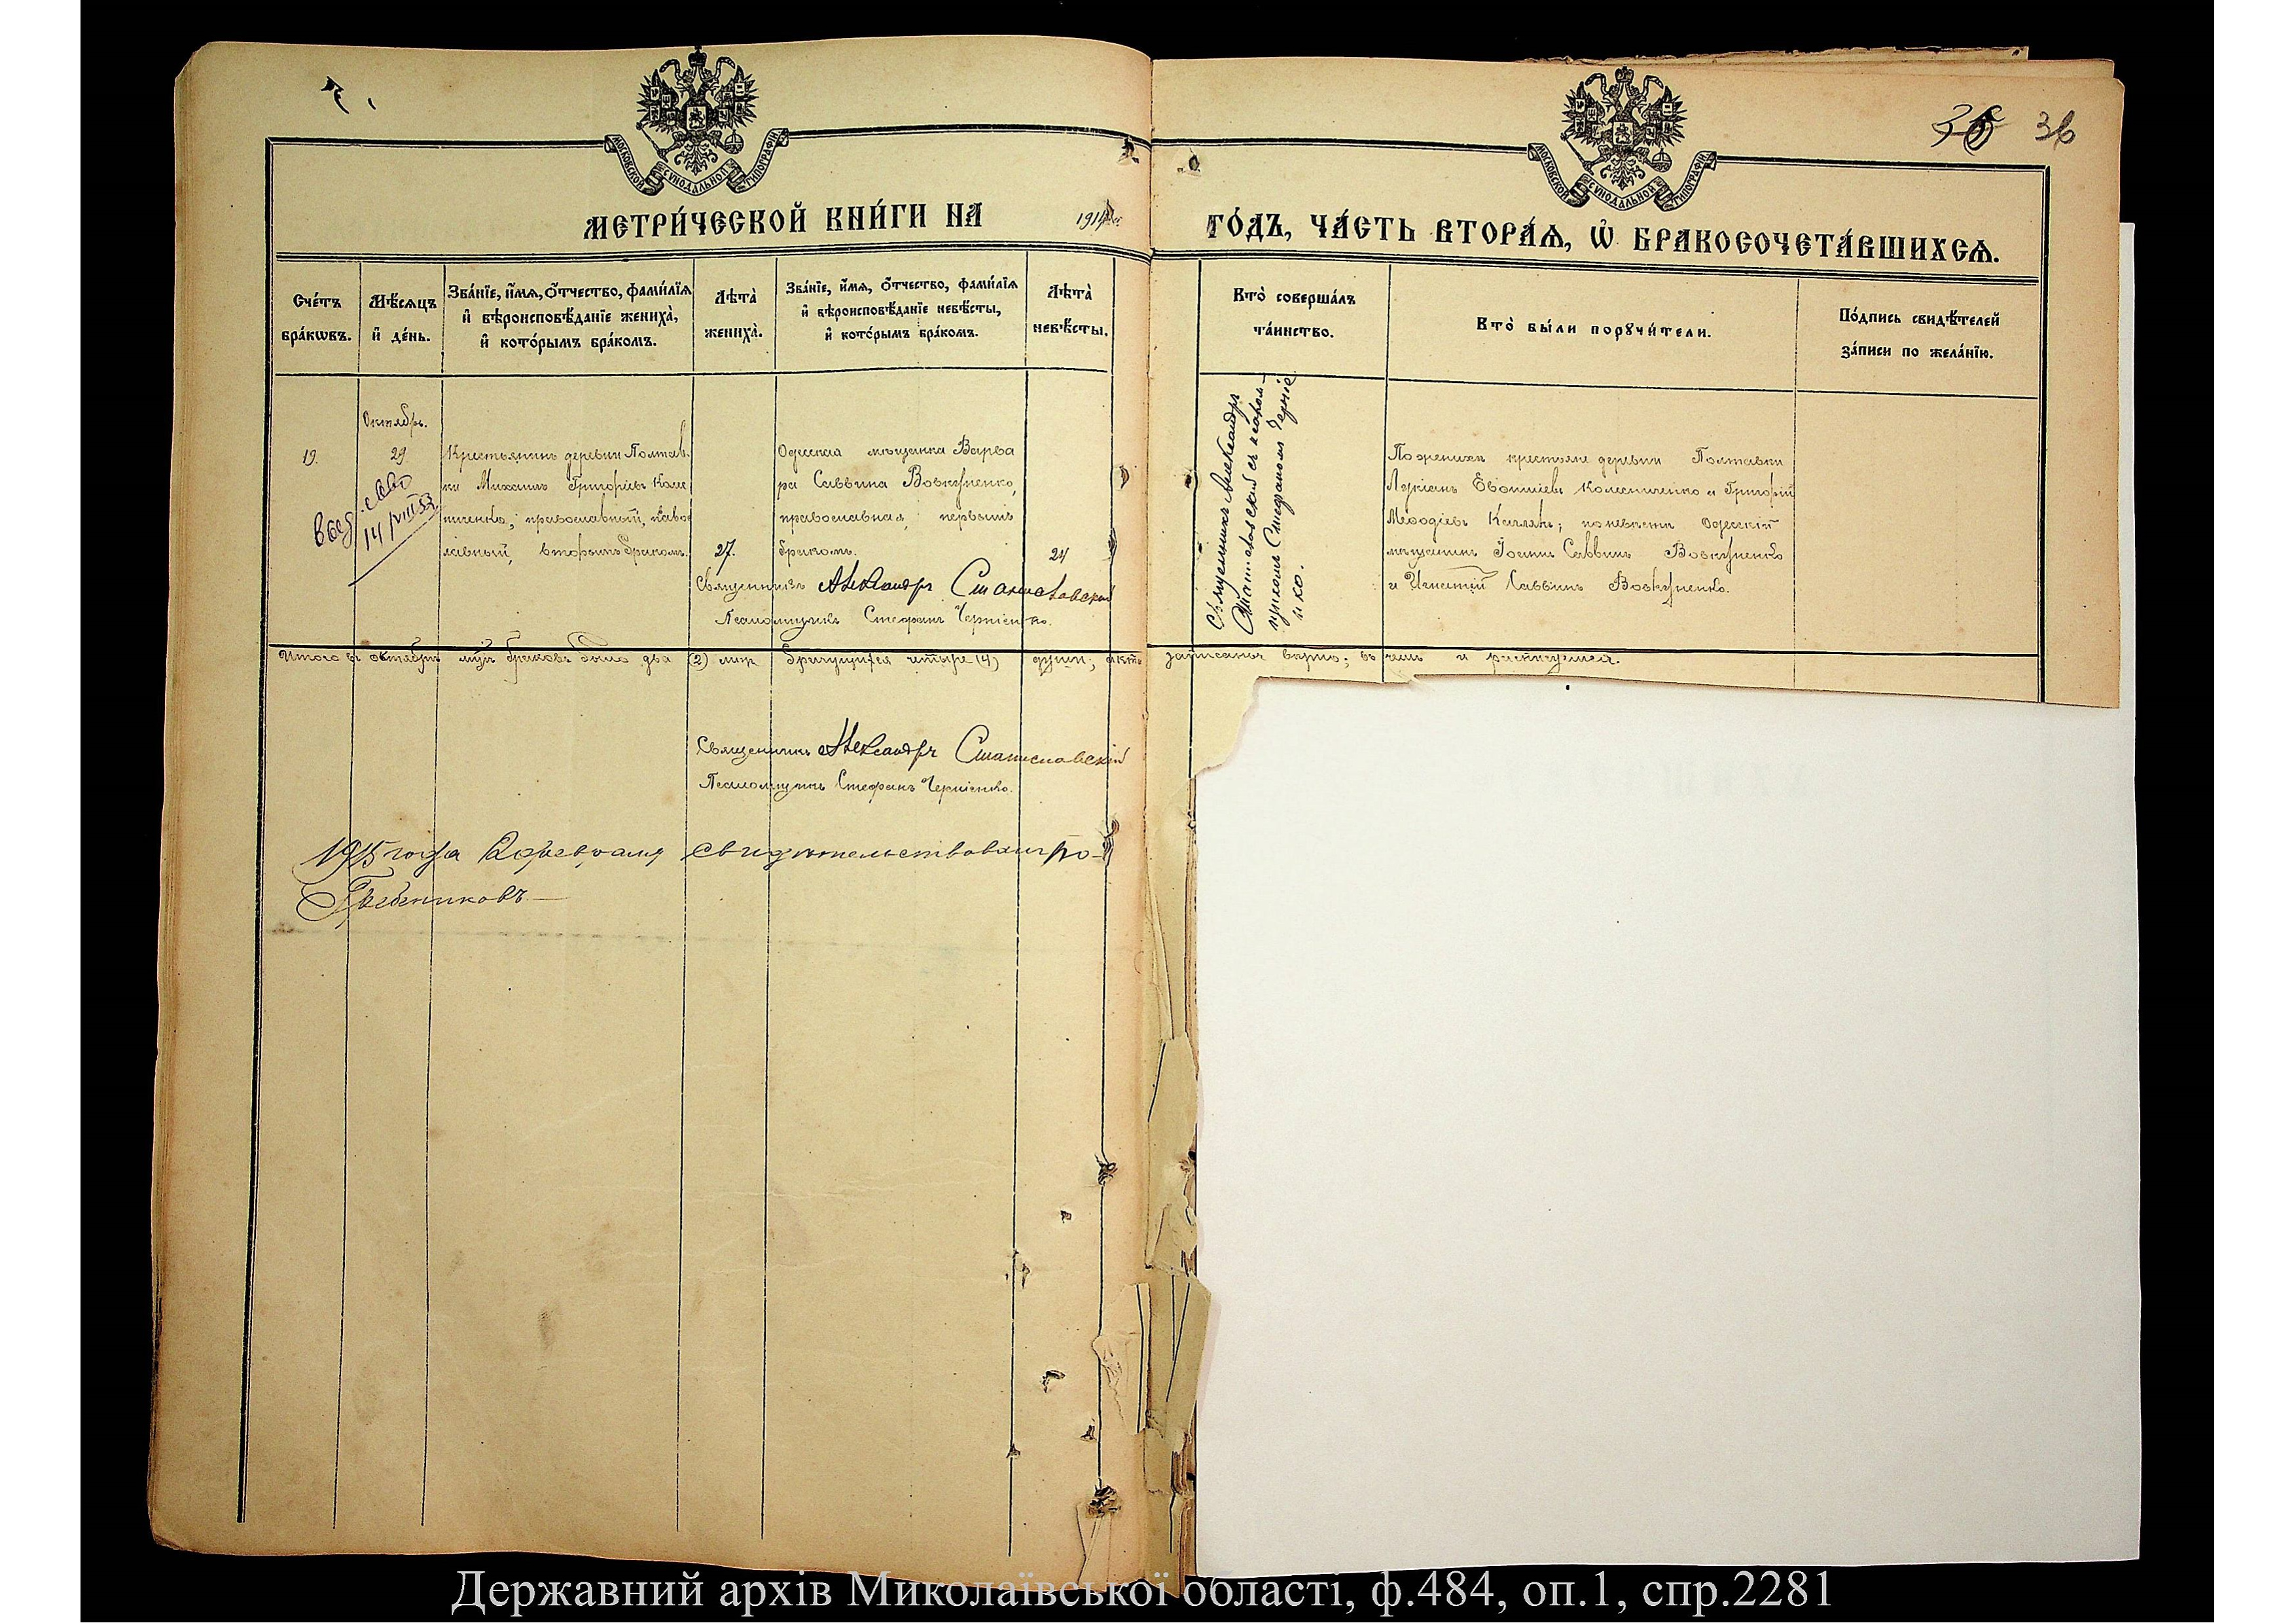 МОСКОВСКОЙ СѴНОДАЛЬНОЙ ТИПОГРАФІИ
МОСКОВСКОЙ СѴНОДАЛЬНОЙ ТИПОГРАФІИ
36
МЕТРИ́ЧЕСКОЙ КНИ́ГИ НА 1914
ГО́ДЪ, ЧА́СТЬ ВТОРА́Ѧ, Ѡ҆ БРАКОСОЧЕТА́ВШИХСѦ.
Сче́тъ
бра́кѡвъ.
Мѣ́сяцъ
и҆ де́нь.
Зва́нїе, и҆́мѧ, ѻ҆́тчество, фами́лїѧ
и҆ вѣроисповѣ́данїе жениха̀,
и҆ кото́рымъ бра́комъ.
Лѣта̀
жениха̀.
Зва́нїе, и҆́мѧ, ѻ҆́тчество, фами́лїѧ
и҆ вѣроисповѣ́данїе невѣ́сты,
и҆ кото́рымъ бра́комъ.
Лѣта̀
невѣ́сты.
Кто̀ соверша́лъ
та́инство.
Кто̀ бы́ли порꙋчи́тели.
По́дпись свидѣ́телей
за́писи по жела́нїю.
Октябрь.
19.
29
14/VIII 53
Крестьянинъ деревни Полтав-
ки Михаилъ Григорьевъ Колес-
ниченко, православный,
вторымъ бракомъ.
27.
Одесская мѣщанка Варва
ра Саввина Вовкуненко,
православная, первымъ
бракомъ.
24
Священникъ Александръ
Станиславскій съ псалом-
щикомъ Стефаномъ Черніе
нко.
По женихѣ крестьяне деревни Полтавки
Евѳиміевъ Колесниченко и Григорій
Меѳодіевъ; по невѣстѣ Одесскій
мѣщанинъ Іоаннъ Саввинъ Вовкуненко
и Игнатій Саввинъ Вовкуненко.
Священникъ Александръ Станиславскій
Псаломщикъ Стефанъ Черніенко.
Итого въ октябрѣ м-цѣ браковъ было два (2) лицъ брачущихся четыре (4) души; записаны вѣрно; въ чемъ и росписуемся.
Священникъ Александръ Станиславскій
Псаломщикъ Стефанъ Черніенко.
1915 года февраля свидѣтельствовалъ
Державний архів Миколаївської області, ф.484, оп.1, спр.2281